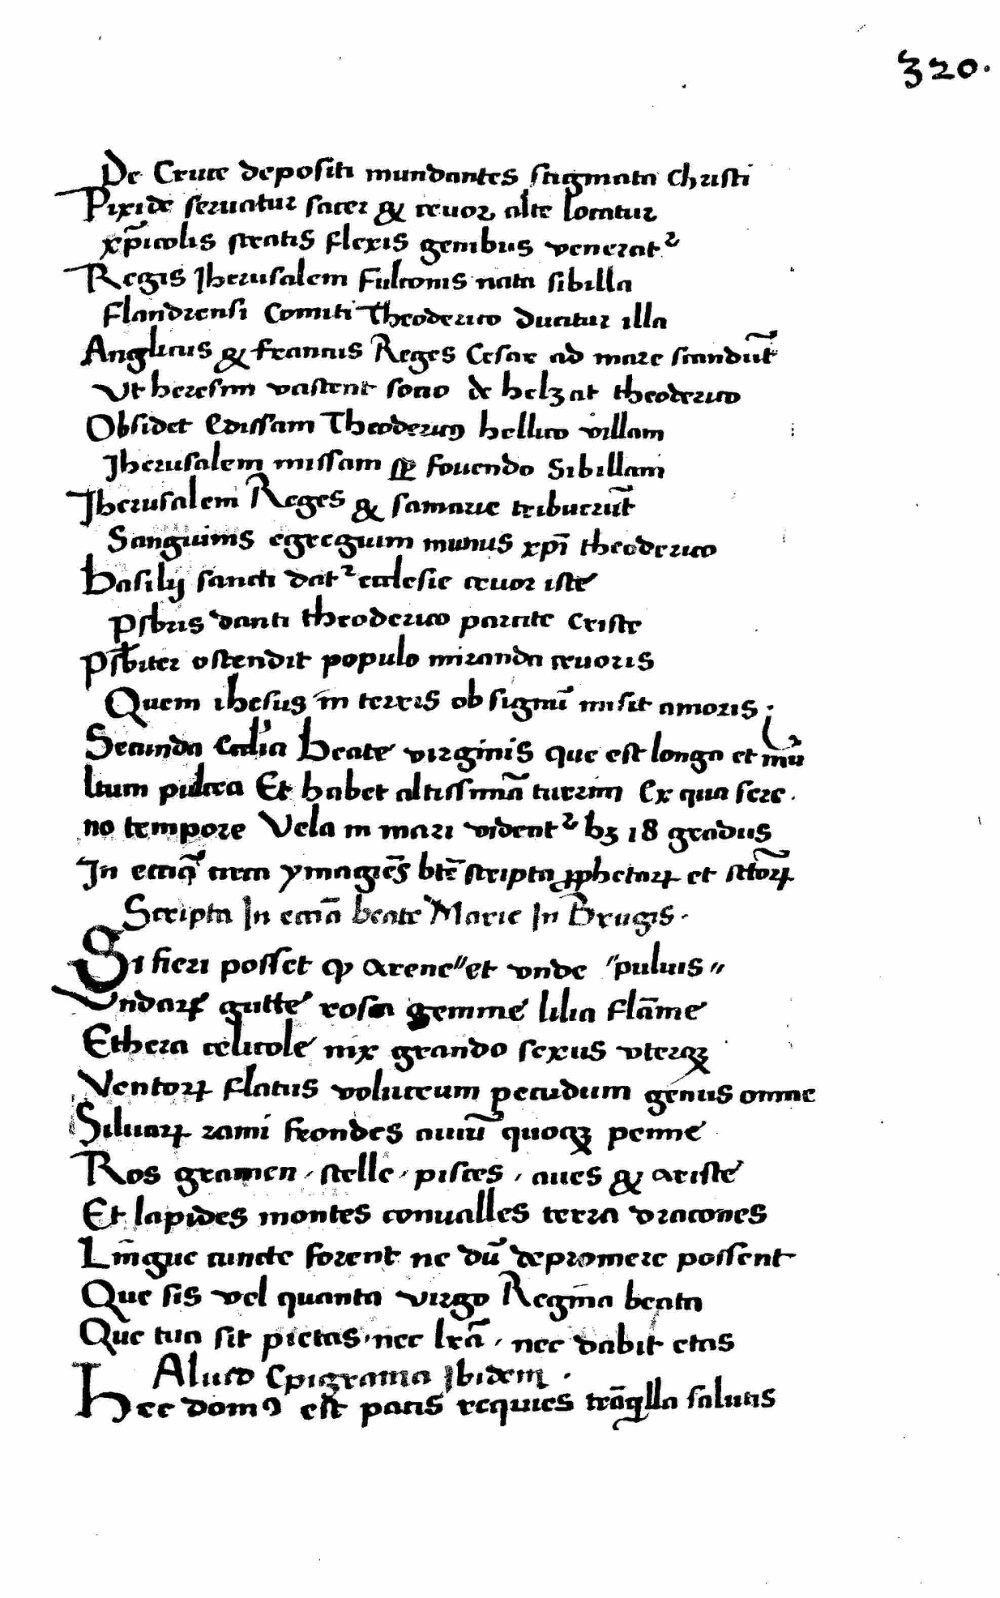 320.
De Cruce depositi mundantes stigmata Christi
Pixide servatur sacer & cruor alte locatur
xp̄icolis stratis flexis genibus venerat²
Regis Jherusalem fulconis nata sibilla
flandrensi Comiti Theoderico ducitur illa
Anglicus & francus Reges Cesar ad mare scandūt
Ut heresim vastent socio de helzat theoderico
Obsidet Edissam Theodericꝰ bellico villam
Jherusalem missam sꝑ fovendo Sibillam
Jherusalem Reges & samarie tribuerūt
Sanguinis egreguim munus xp̄i theoderico
basilij sancti dat² ecclesie cruor iste
p̄sbris danti theoderico parcite Criste
p̄sbiter ostendit populo miranda cruoris
Quem ihesus in terris ob signū misit amoris.
Secunda Ecc̄lia beate virginis que est longa et mū
ltum pulcra Et habet altissimā turrim Ex qua sere.
no tempore Vela in mari vident² hꝫ 18 gradus
In circa ymagiēs btē scripta ꝓphetaꝝ et sc̄toꝝ
Scripta In ecc̄ia beate Marie In Brugis.
Si fieri posset ꝙ arene" et unde "puluis"
Undaꝝ gutte rosa gemme lilia flāme
Ethera celicole nix grando sexus uterqꝫ
Ventoꝝ flatus volucrum pecudum genus omne
Siluaꝝ rami frondes auiū quoqꝫ penne
Ros gramen, stelle, pisces, aues & ariste
Et lapides montes conualles terra dracones
Lingue cuncte forent ne dū depromere possent
Que sis vel quanta virgo Regina beata
Que tua sit pietas, nec lrā, nec dabit etas
Aliud Epigrama Ibidem.
Hec domꝰ est pacis requies trāq̄lla salutis